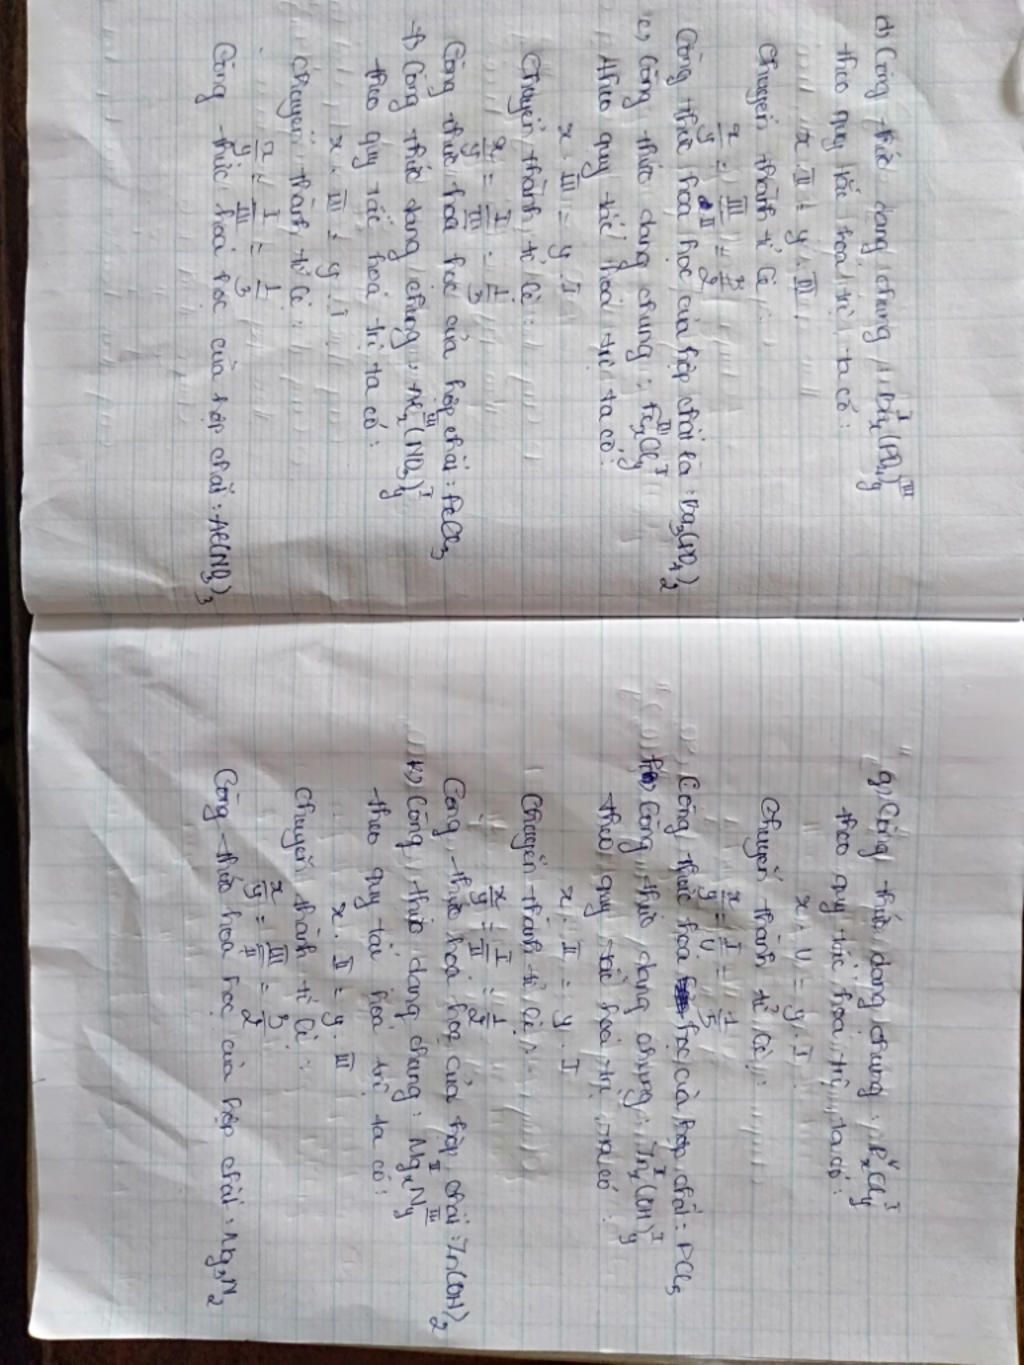 d) Công thức dạng chung : Bax(PO4)y
theo quy tắc hoá trị, ta có :
x . II = y . III
Chuyển thành tỉ lệ :
x/y = III/II = 3/2
Công thức hóa học của hợp chất là : Ba3(PO4)2
e) Công thức dạng chung : FexCly
theo quy tắc hoá trị ta có :
x . III = y . I
Chuyển thành tỉ lệ :
x/y = I/III = 1/3
Công thức hoá học của hợp chất : FeCl3
f) Công thức dạng chung : Alx(NO3)y
theo quy tắc hoá trị ta có :
x . III = y . I
Chuyển thành tỉ lệ :
x/y = I/III = 1/3
Công thức hoá học của hợp chất : Al(NO3)3
g) Công thức dạng chung : PxCly
theo quy tắc hoá trị, ta có :
x . V = y . I
Chuyển thành tỉ lệ :
x/y = I/V = 1/5
Công thức hoá học của hợp chất : PCl5
Công thức dạng chung : Znx(OH)y
theo quy tắc hoá trị, ta có :
x . II = y . I
Chuyển thành tỉ lệ :
x/y = I/II = 1/2
Công thức hoá học của hợp chất : Zn(OH)2
k) Công thức dạng chung : MgxNy
theo quy tắc hoá trị ta có :
x . II = y . III
Chuyển thành tỉ lệ :
x/y = III/II = 3/2
Công thức hoá học của hợp chất : Mg3N2